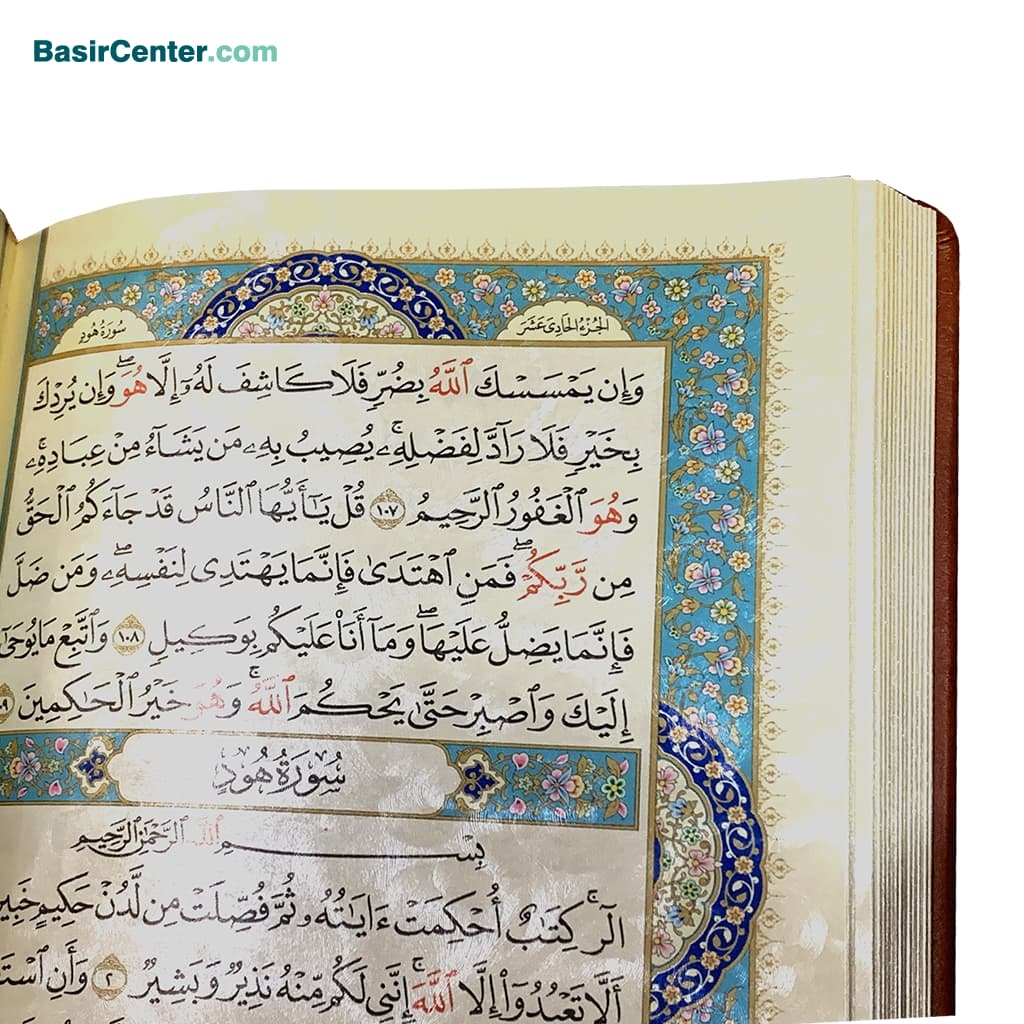 BasirCenter.com
الجُزْءُ الحَادِی عَشَرَ
سُورَةُ هُود
وَإِن يَمْسَسْكَ ٱللَّهُ بِضُرٍّ فَلَا كَاشِفَ لَهُۥٓ إِلَّا هُوَ ۖ وَإِن يُرِدْكَ
بِخَيْرٍ فَلَا رَآدَّ لِفَضْلِهِۦ ۚ يُصِيبُ بِهِۦ مَن يَشَآءُ مِنْ عِبَادِهِۦ ۚ
وَهُوَ ٱلْغَفُورُ ٱلرَّحِيمُ ١٠٧ قُلْ يَـٰٓأَيُّهَا ٱلنَّاسُ قَدْ جَآءَكُمُ ٱلْحَقُّ
مِن رَّبِّكُمْ ۖ فَمَنِ ٱهْتَدَىٰ فَإِنَّمَا يَهْتَدِى لِنَفْسِهِۦ ۖ وَمَن ضَلَّ
فَإِنَّمَا يَضِلُّ عَلَيْهَا ۖ وَمَآ أَنَا۠ عَلَيْكُم بِوَكِيلٍ ١٠٨ وَٱتَّبِعْ مَا يُوحَىٰٓ
إِلَيْكَ وَٱصْبِرْ حَتَّىٰ يَحْكُمَ ٱللَّهُ ۚ وَهُوَ خَيْرُ ٱلْحَـٰكِمِينَ
سُورَةُ هُودٍ
بِسْمِ ٱللَّهِ ٱلرَّحْمَـٰنِ ٱلرَّحِيمِ
الٓر ۚ كِتَـٰبٌ أُحْكِمَتْ ءَايَـٰتُهُۥ ثُمَّ فُصِّلَتْ مِن لَّدُنْ حَكِيمٍ
أَلَّا تَعْبُدُوٓا۟ إِلَّا ٱللَّهَ ۚ إِنَّنِى لَكُم مِّنْهُ نَذِيرٌ وَبَشِيرٌ ٢ وَأَنِ